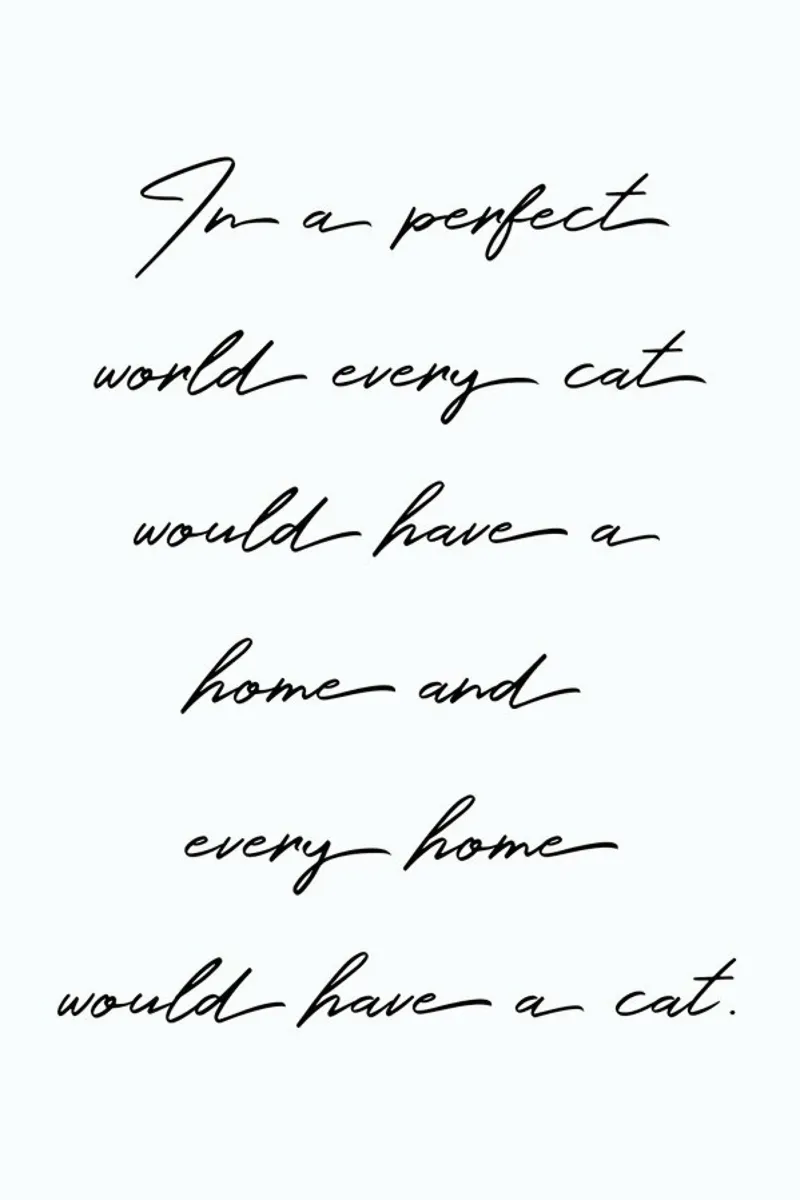 In a perfect
world every cat
would have a
home and
every home
would have a cat.